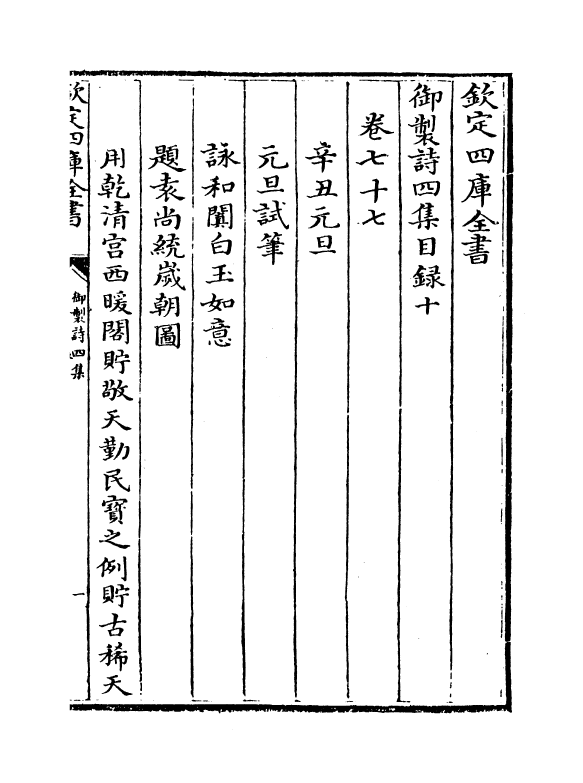 欽定四庫全書
御製詩四集目録十
卷七十七
辛丑元旦
元旦試筆
詠和闐白玉如意
題袁尚統歲朝圖
用乾清宫西暖閣貯敬天勤民寳之例貯古稀天
欽定四庫全書
御製詩四集
一